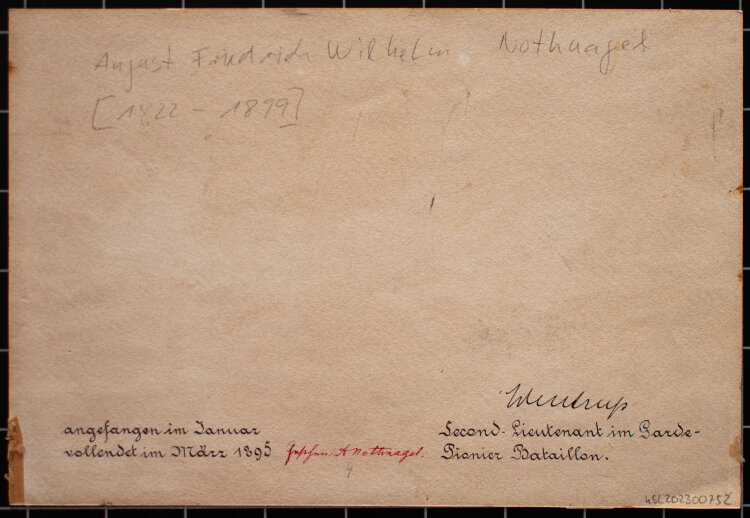 August Friedrich Wilhelm Nothnagel
[1822 - 1899]
angefangen im Januar
vollendet im März 1895
Gesehen. A Nothnagel.
4
Second-Lieutenant im Garde-
Pionier Bataillon.
48L202300752